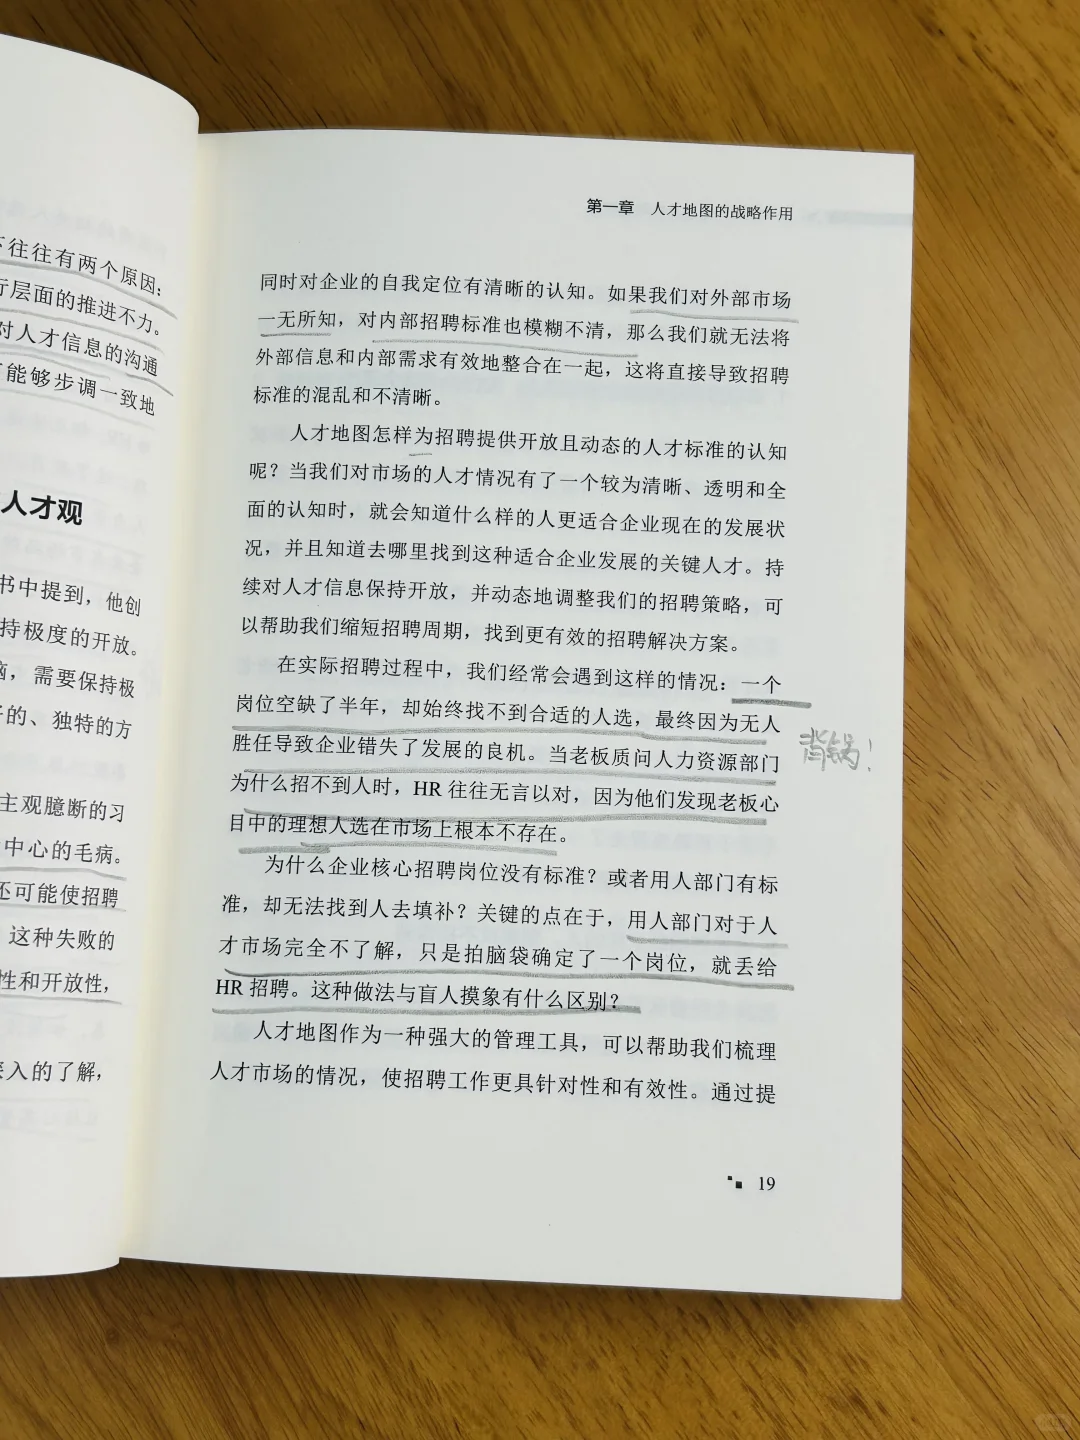 不往往有两个原因：
行层面的推进不力。
对人才信息的沟通
能够步调一致地
人才观
书中提到，他创
持极度的开放。
脑，需要保持极
的、独特的方
主观臆断的习
中心的毛病。
还可能使招聘
这种失败的
性和开放性，
深入的了解，
第一章 人才地图的战略作用
同时对企业的自我定位有清晰的认知。如果我们对外部市场
一无所知，对内部招聘标准也模糊不清，那么我们就无法将
外部信息和内部需求有效地整合在一起，这将直接导致招聘
标准的混乱和不清晰。
人才地图怎样为招聘提供开放且动态的人才标准的认知
呢？当我们对市场的人才情况有了一个较为清晰、透明和全
面的认知时，就会知道什么样的人更适合企业现在的发展状
况，并且知道去哪里找到这种适合企业发展的关键人才。持
续对人才信息保持开放，并动态地调整我们的招聘策略，可
以帮助我们缩短招聘周期，找到更有效的招聘解决方案。
在实际招聘过程中，我们经常会遇到这样的情况：一个
岗位空缺了半年，却始终找不到合适的人选，最终因为无人
胜任导致企业错失了发展的良机。当老板质问人力资源部门
为什么招不到人时，HR 往往无言以对，因为他们发现老板心
目中的理想人选在市场上根本不存在。
背锅！
为什么企业核心招聘岗位没有标准？或者用人部门有标
准，却无法找到人去填补？关键的点在于，用人部门对于人
才市场完全不了解，只是拍脑袋确定了一个岗位，就丢给
HR 招聘。这种做法与盲人摸象有什么区别？
人才地图作为一种强大的管理工具，可以帮助我们梳理
人才市场的情况，使招聘工作更具针对性和有效性。通过提
19